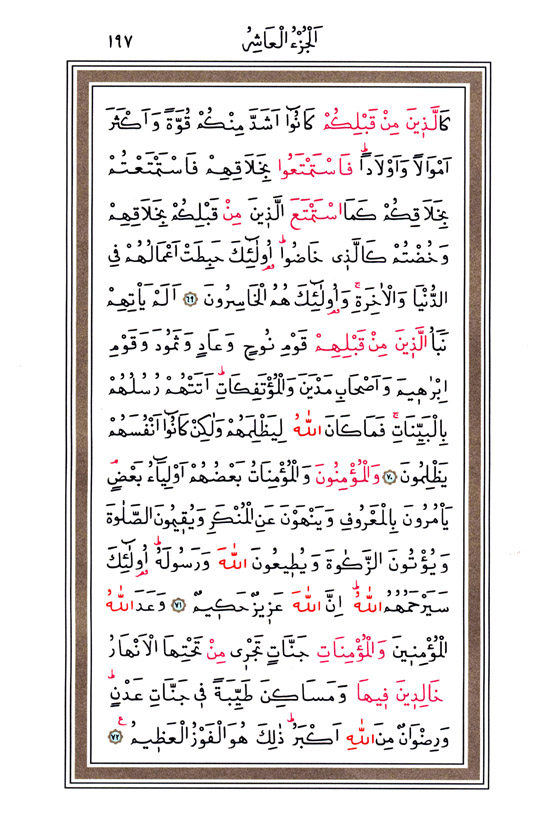 اَلْجُزْءُ الْعَاشِرُ ١٩٧
كَالَّذٖينَ مِنْ قَبْلِكُمْ كَانُٓوا اَشَدَّ مِنْكُمْ قُوَّةً وَاَكْثَرَ
اَمْوَالًا وَاَوْلَادًاؕ فَاسْتَمْتَعُوا بِخَلَاقِهِمْ فَاسْتَمْتَعْتُمْ
بِخَلَاقِكُمْ كَمَا اسْتَمْتَعَ الَّذٖينَ مِنْ قَبْلِكُمْ بِخَلَاقِهِمْ
وَخُضْتُمْ كَالَّذٖى خَاضُواؕ اُولٰٓئِكَ حَبِطَتْ اَعْمَالُهُمْ فِى
الدُّنْيَا وَالْاٰخِرَةِۚ وَاُولٰٓئِكَ هُمُ الْخَاسِرُونَ ﴿٦٩﴾ اَلَمْ يَاْتِهِمْ
نَبَاُ الَّذٖينَ مِنْ قَبْلِهِمْ قَوْمِ نُوحٍ وَعَادٍ وَثَمُودَ وَقَوْمِ
اِبْرٰهٖيمَ وَاَصْحَابِ مَدْيَنَ وَالْمُؤْتَفِكَاتِؕ اَتَتْهُمْ رُسُلُهُمْ
بِالْبَيِّنَاتِۚ فَمَا كَانَ اللّٰهُ لِيَظْلِمَهُمْ وَلٰكِنْ كَانُٓوا اَنْفُسَهُمْ
يَظْلِمُونَ ﴿٧٠﴾ وَالْمُؤْمِنُونَ وَالْمُؤْمِنَاتُ بَعْضُهُمْ اَوْلِيَٓاءُ بَعْضٍۘ
يَاْمُرُونَ بِالْمَعْرُوفِ وَيَنْهَوْنَ عَنِ الْمُنْكَرِ وَيُقٖيمُونَ الصَّلٰوةَ
وَيُؤْتُونَ الزَّكٰوةَ وَيُطٖيعُونَ اللّٰهَ وَرَسُولَهُؕ اُولٰٓئِكَ
سَيَرْحَمُهُمُ اللّٰهُؕ اِنَّ اللّٰهَ عَزٖيزٌ حَكٖيمٌ ﴿٧١﴾ وَعَدَ اللّٰهُ
الْمُؤْمِنٖينَ وَالْمُؤْمِنَاتِ جَنَّاتٍ تَجْرٖى مِنْ تَحْتِهَا الْاَنْهَارُ
خَالِدٖينَ فٖيهَا وَمَسَاكِنَ طَيِّبَةً فٖى جَنَّاتِ عَدْنٍؕ
وَرِضْوَانٌ مِنَ اللّٰهِ اَكْبَرُؕ ذٰلِكَ هُوَ الْفَوْزُ الْعَظٖيمُ ﴿٧٢﴾ ع